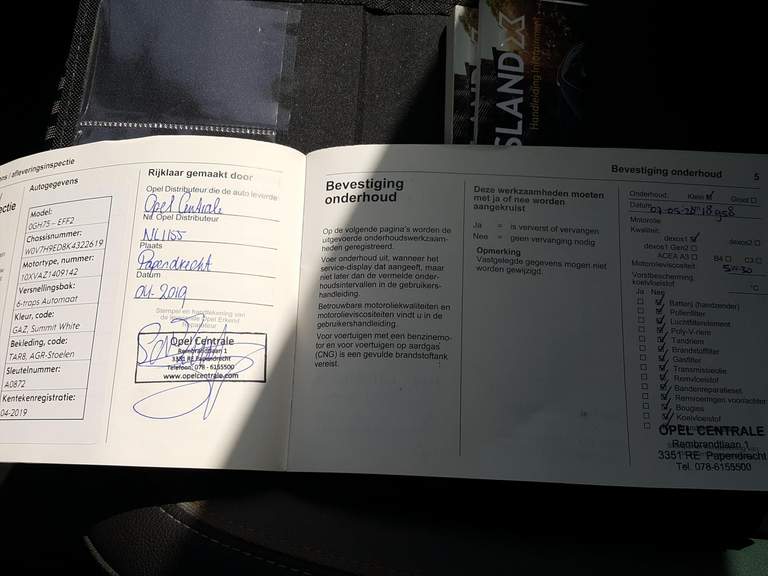 SLAND X
Handleiding Infotainment
SLAND
ens / afleveringsinspectie
ectie
Autogegevens
Model:
0GH75 - EFF2
Chassisnummer:
W0V7H9ED8K4322619
Motortype, nummer:
10XVAZ1409142
Versnellingsbak:
6-traps Automaat
Kleur, code:
GAZ, Summit White
Bekleding, code:
TAR8, AGR-Stoelen
Sleutelnummer:
A0872
Kentekenregistratie:
04-2019
Rijklaar gemaakt door
Opel Distributeur die de auto leverde
Opel Centrale
Nr. Opel Distributeur
NL1155
Plaats
Papendrecht
Datum
04-2019
Stempel en handtekening van
de leverende Opel Erkend
Reparateur
Opel Centrale
Rembrandtlaan 1
3351 RE Papendrecht
Telefoon: 078 - 6155500
www.opelcentrale.com
Bevestiging
onderhoud
Op de volgende pagina's worden de
uitgevoerde onderhoudswerkzaam-
heden geregistreerd.
Voer onderhoud uit, wanneer het
service-display dat aangeeft, maar
niet later dan de vermelde onder-
houdsintervallen in de gebruikers-
handleiding.
Betrouwbare motoroliekwaliteiten en
motorolieviscositeiten vindt u in de
gebruikershandleiding.
Voor voertuigen met een benzinemo-
tor en voor voertuigen op aardgas
(CNG) is een gevulde brandstoftank
vereist.
Deze werkzaamheden moeten
met ja of nee worden
aangekruist
Ja = is ververst of vervangen
Nee = geen vervanging nodig
Opmerking
Vastgelegde gegevens mogen niet
worden gewijzigd.
Bevestiging onderhoud 5
Onderhoud: Klein Groot
Datum
Motorolie
Kwaliteit:
dexos1 dexos2
dexos1 Gen2
ACEA A3 B4 C3
Motorolieviscositeit 5W30
Vorstbescherming
koelvloeistof °C
Ja Nee
Batterij (handzender)
Pollenfilter
Luchtfilterelement
Poly-V-riem
Tandriem
Brandstoffilter
Gasfilter
Transmissieolie
Remvloeistof
Bandenreparatieset
Remvoeringen voor/achter
Bougies
Koelvloeistof
OPEL CENTRALE
Rembrandtlaan 1
3351 RE Papendrecht
Tel. 078-6155500